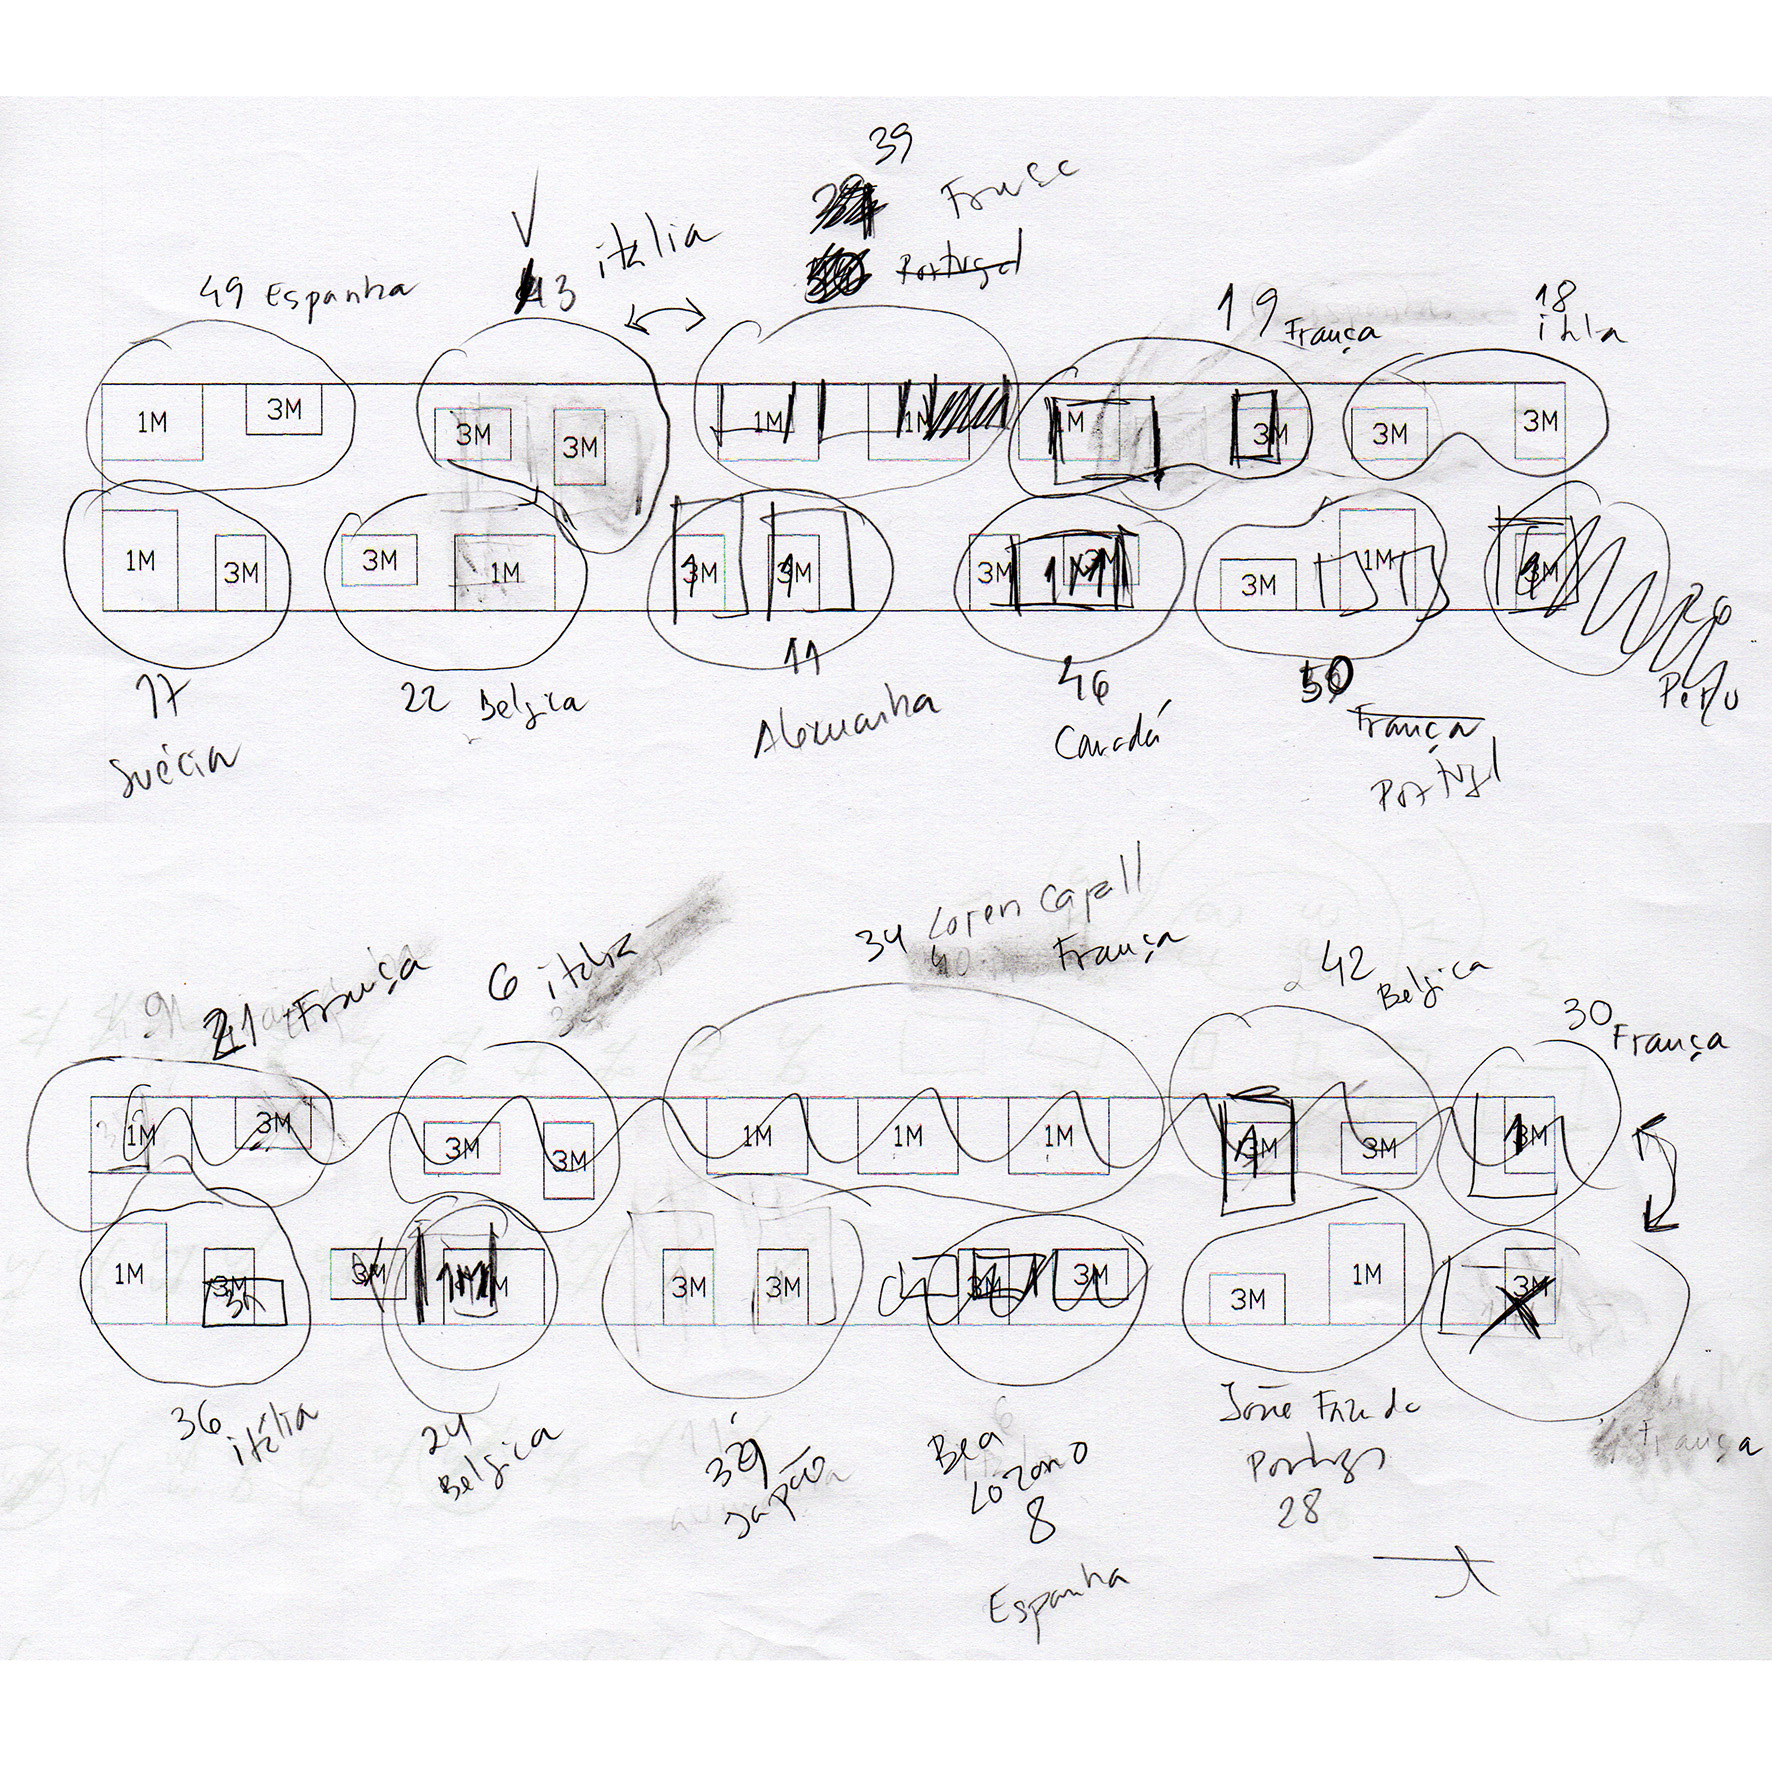 39
França
Portugal
49 Espanha
43 itália
19 França
18
itlia
1M 3M
3M 3M
1M 1M
1M 3M
3M 3M
1M 3M
3M 1M
3M 3M
3M 3M
3M 1M
3M
17
Suécia
22 Belgica
11
Alemanha
46
Canadá
50
França
Portugal
26
Peru
21 França
6 itália
34 Loren Capell
França
42
Belgica
30
França
1M 3M
3M 3M
1M 1M 1M
3M 3M
3M
1M 3M
3M 1M
3M 3M
3M 3M
3M 1M
3M
36
itália
24
Belgica
39
Japão
Bea
Lozano
8
Espanha
Portugal
28
França